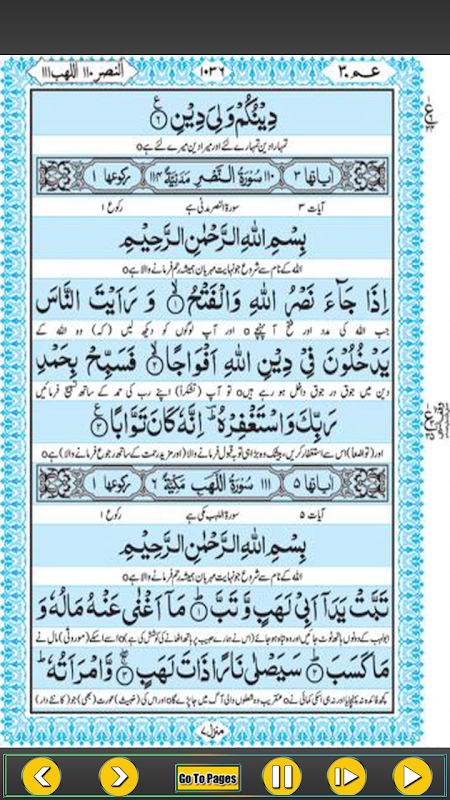 عـم ٣٠ ١٠٣٦ النصر ١١٠ اللهب ١١١
دِيْنُكُمْ وَلِيَ دِيْنِ ۶
تمہارا دین تمہارے لئے اور میرا دین میرے لئے ہے
اٰیاتها ٣ ١١٠ سُوْرَةُ النَّصْرِ مَدَنِيَّةٌ ١١٤ رکوعها ١
آیات ۳ سورۃ النصر مدنی ہے رکوع ۱
بِسْمِ اللّٰهِ الرَّحْمٰنِ الرَّحِيْمِ
اللہ کے نام سے شروع جو نہایت مہربان ہمیشہ رحم فرمانے والا ہے
اِذَا جَآءَ نَصْرُ اللّٰهِ وَالْفَتْحُ ۱ وَ رَاَيْتَ النَّاسَ
جب اللہ کی مدد اور فتح آ پہنچے اور آپ لوگوں کو دیکھ لیں (کہ) وہ اللہ کے
يَدْخُلُوْنَ فِيْ دِيْنِ اللّٰهِ اَفْوَاجًا ۲ فَسَبِّحْ بِحَمْدِ
دین میں جوق در جوق داخل ہو رہے ہیں تو آپ (تشکراً) اپنے رب کی حمد کے ساتھ تسبیح فرمائیں
رَبِّكَ وَاسْتَغْفِرْهُ ؕ اِنَّهٗ كَانَ تَوَّابًا ۳
اور (تواضعاً) اس سے استغفار کریں، بیشک وہ بڑا ہی توبہ قبول فرمانے والا (اور مزید رحمت کے ساتھ رجوع فرمانے والا) ہے
اٰیاتها ٥ ١١١ سُوْرَةُ اللَّهَبِ مَكِّيَّةٌ ٦ رکوعها ١
آیات ۵ سورۃ اللہب مکی ہے رکوع ۱
بِسْمِ اللّٰهِ الرَّحْمٰنِ الرَّحِيْمِ
اللہ کے نام سے شروع جو نہایت مہربان ہمیشہ رحم فرمانے والا ہے
تَبَّتْ يَدَاۤ اَبِيْ لَهَبٍ وَّ تَبَّ ۱ مَاۤ اَغْنٰى عَنْهُ مَالُهٗ وَ
ابولہب کے دونوں ہاتھ ٹوٹ جائیں اور وہ تباہ ہو جائے (اس نے ہمارے حبیب پر ہاتھ اٹھانے کی کوشش کی ہے) اسے اسکے (موروثی) مال نے
مَا كَسَبَ ۲ سَيَصْلٰى نَارًا ذَاتَ لَهَبٍ ۳ وَّ امْرَاَتُهٗ ؕ
کچھ فائدہ نہ پہنچایا اور نہ ہی اسکی کمائی نے عنقریب وہ شعلوں والی آگ میں جا پڑے گا اور اس کی (خبیث) عورت (بھی) جو (کانٹے دار)
منزل ۷
Go To Pages